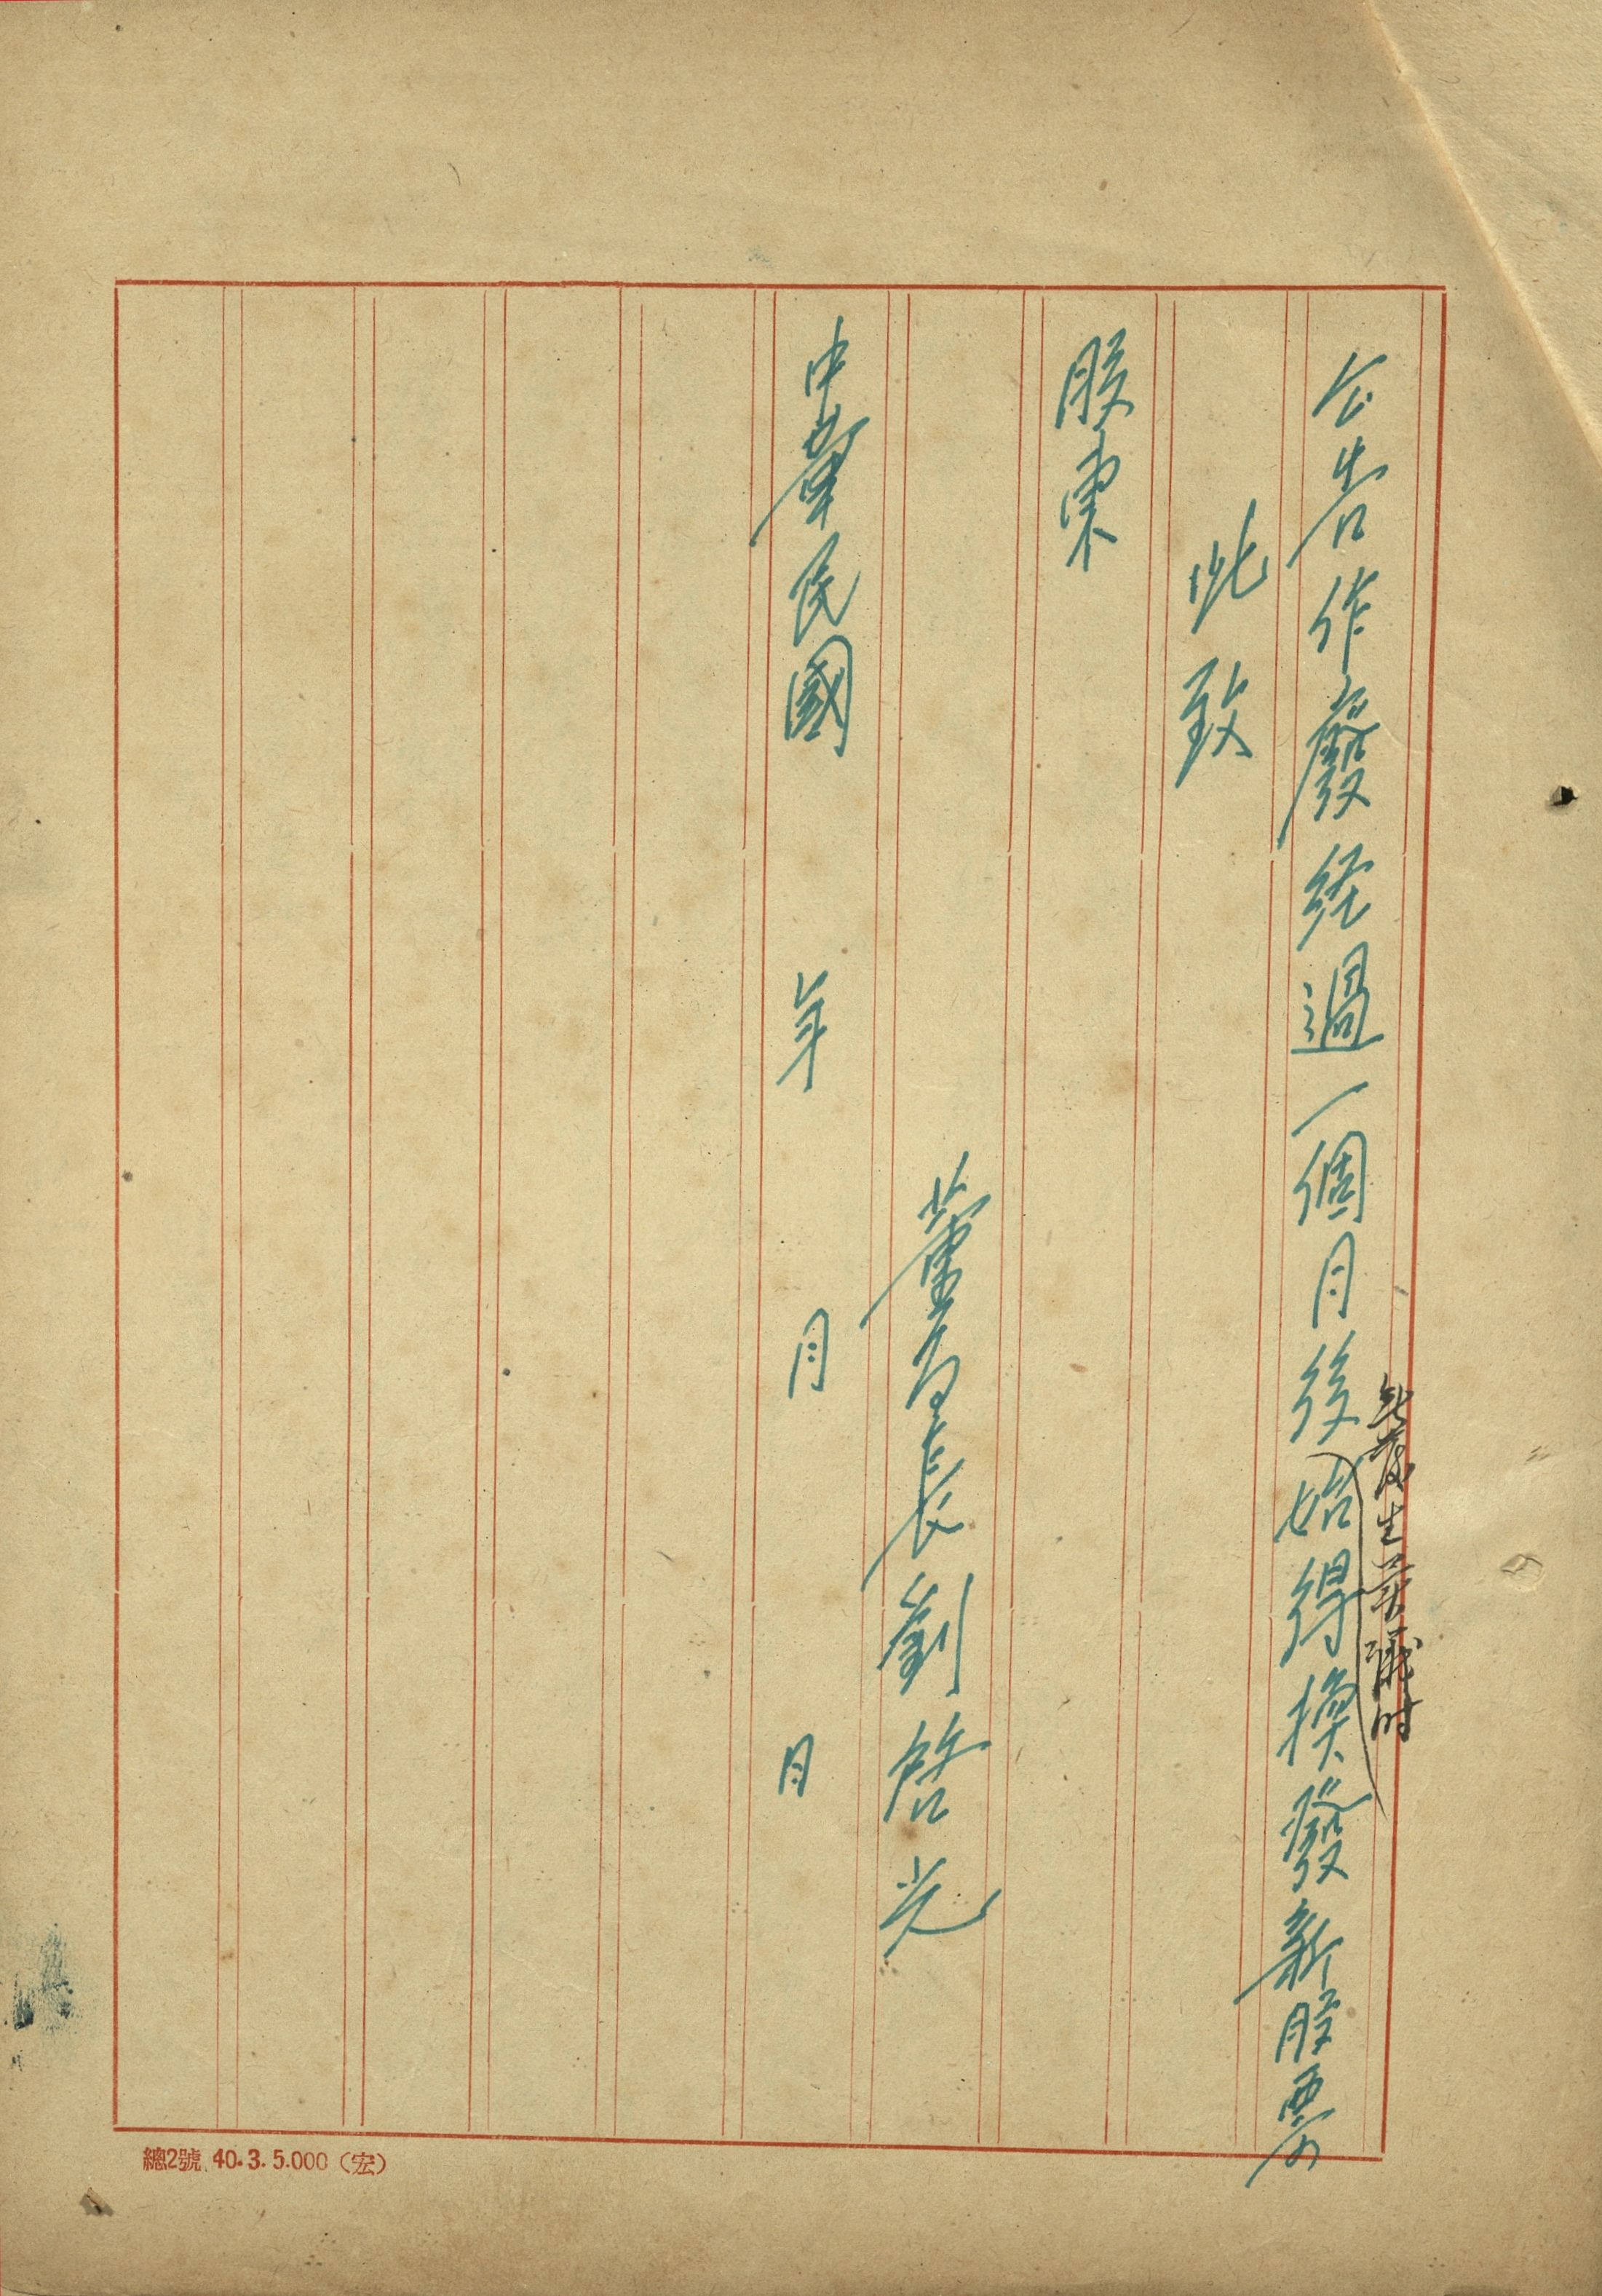 公告作廢經過一個月後始得換發新股票
無發生異議時
此致
股東
董事長劉啓光
中華民國 年 月 日
總2號 40.3.5.000（宏）